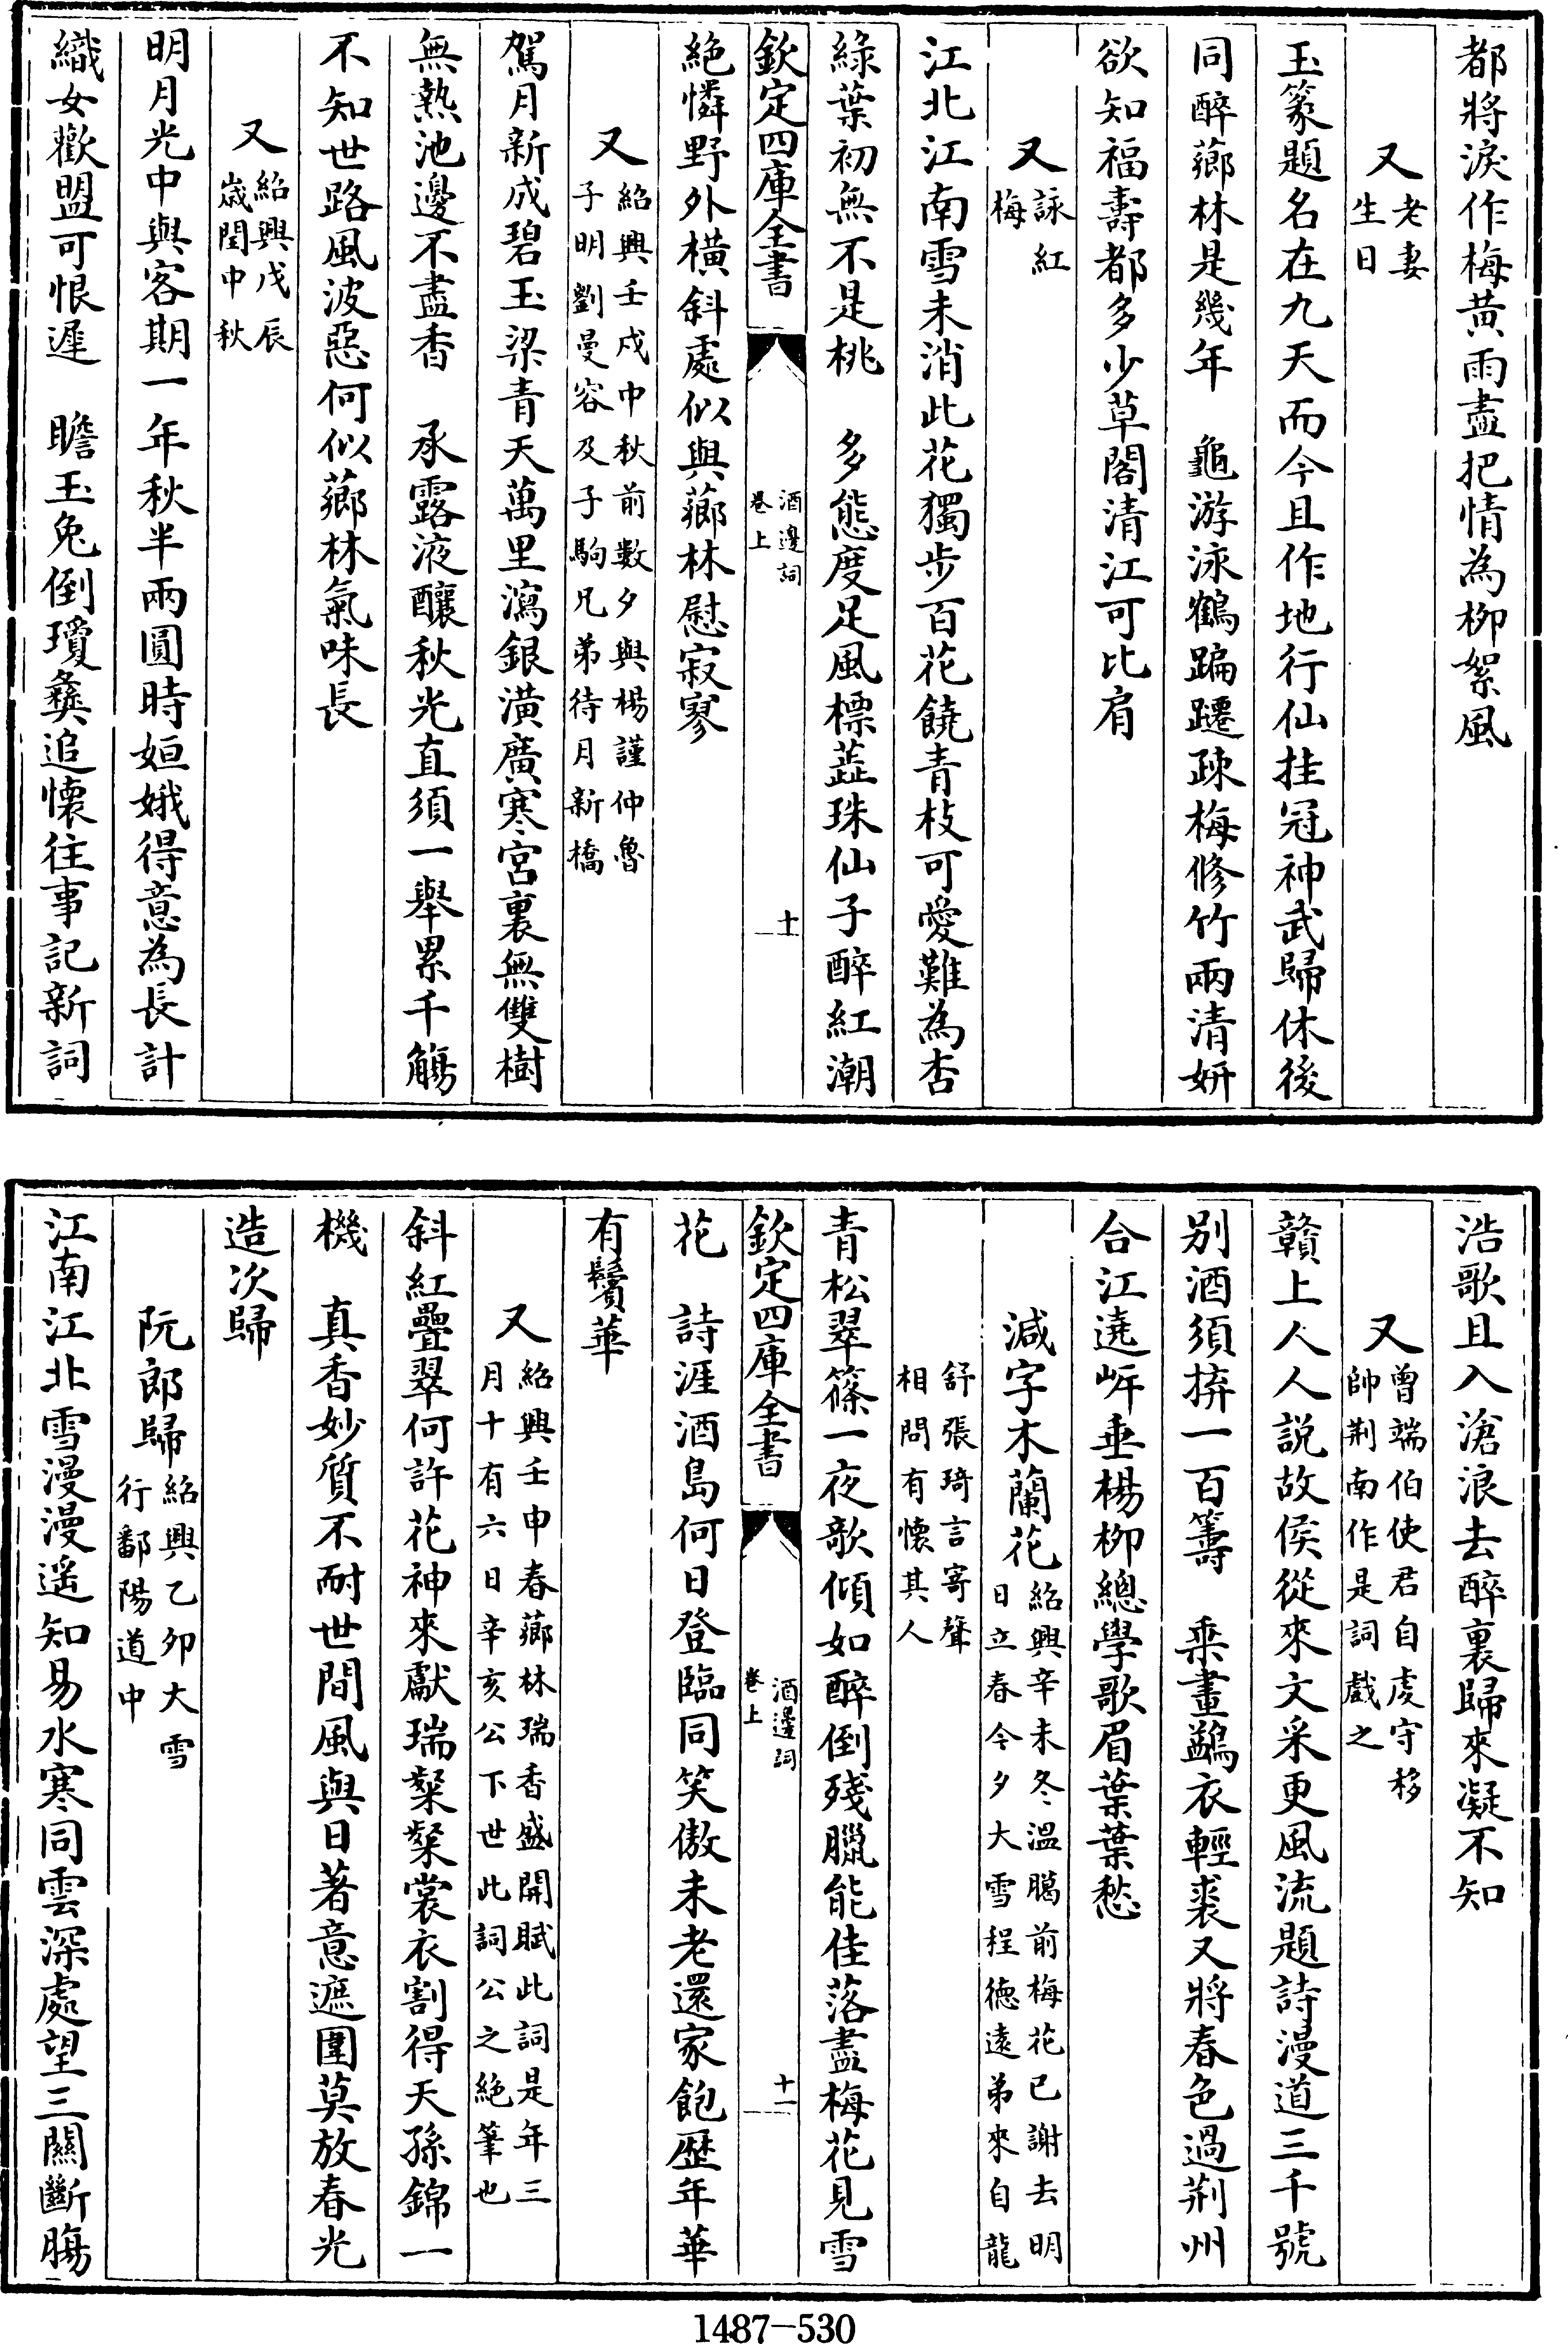 都將淚作梅黄雨盡把情為柳絮風
又老妻生日
玉篆題名在九天而今且作地行仙挂冠神武歸休後
同醉薌林是幾年　龜游泳鶴蹁躚疎梅修竹兩清妍
欲知福壽都多少草閣清江可比肩
又詠紅梅
江北江南雪未消此花獨步百花饒青枝可愛難為杏
緑葉初無不是桃　多態度足風標蕋珠仙子醉紅潮
欽定四庫全書
酒邊詞
卷上
十
絶憐野外橫斜處似與薌林慰寂寥
又紹興壬戌中秋前數夕與楊謹仲魯
子明劉曼容及子駒兄弟待月新橋
駕月新成碧玉梁青天萬里瀉銀潢廣寒宫裏無雙樹
無熱池邊不盡香　承露液釀秋光直須一舉累千觴
不知世路風波惡何似薌林氣味長
又紹興戊辰
歳閏中秋
明月光中與客期一年秋半兩圓時姮娥得意為長計
織女歡盟可恨遲　瞻玉兔倒瓊彝追懷往事記新詞
浩歌且入滄浪去醉裏歸來凝不知
又曾端伯使君自䖍守移
帥荆南作是詞戲之
贛上人人説故侯從來文采更風流題詩漫道三千號
别酒須拚一百籌　乘畫鷁衣輕裘又將春色過荆州
合江遶㟁垂楊柳總學歌眉葉葉愁
減字木蘭花紹興辛未冬温臈前梅花已謝去明
日立春今夕大雪程德遠弟來自龍
舒張琦言寄聲
相問有懷其人
青松翠篠一夜欹傾如醉倒殘臘能佳落盡梅花見雪
欽定四庫全書
酒邊詞
卷上
十一
花　詩涯酒島何日登臨同笑傲未老還家飽歴年華
有鬢華
又紹興壬申春薌林瑞香盛開賦此詞是年三
月十有六日辛亥公下世此詞公之絶筆也
斜紅疊翠何許花神來獻瑞粲粲裳衣割得天孫錦一
機　真香妙質不耐世間風與日著意遮圍莫放春光
造次歸
阮郎歸紹興乙卯大雪
行鄱陽道中
江南江北雪漫漫遥知易水寒同雲深處望三闗斷腸
1487-530